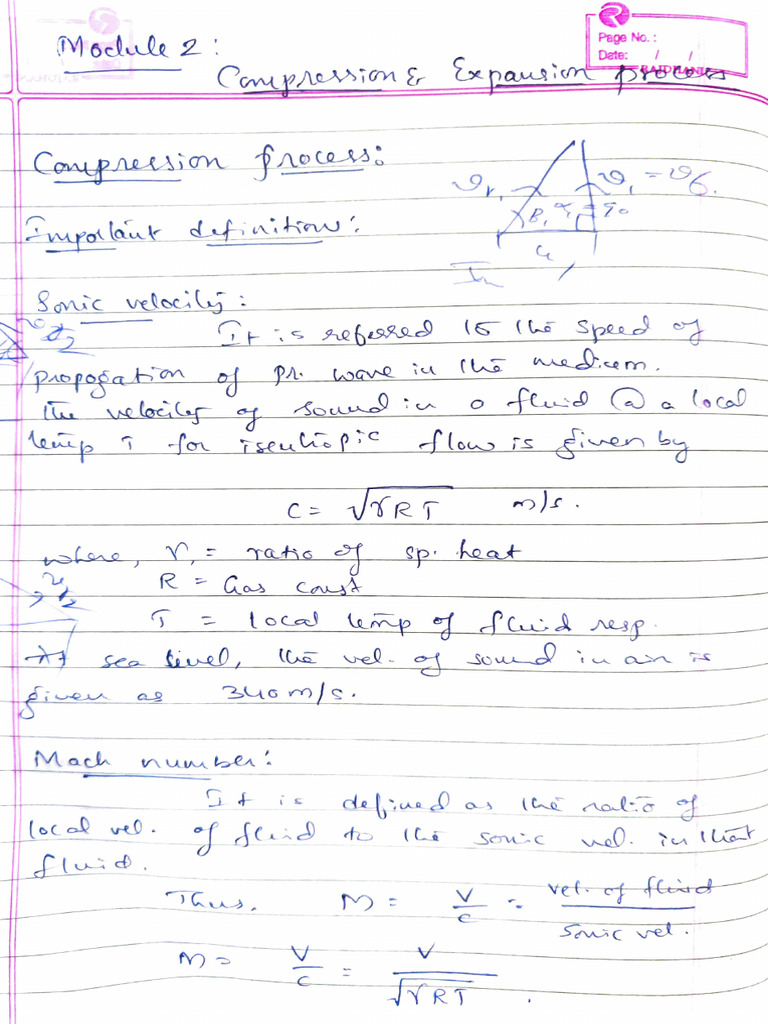 Module 2 :
Page No. :
Date: / /
Compression & Expansion process
Compression process:
Important definition:
Sonic velocity :
It is referred to the speed of
propogation of pr. wave in the medium.
The velocity of sound in a fluid @ a local
temp T for isentropic flow is given by
C = √γRT m/s.
where, γ, = ratio of sp. heat
R = Gas const
T = local temp of fluid resp.
At sea level, the vel. of sound in air is
given as 340 m/s.
Mach number:
It is defined as the ratio of
local vel. of fluid to the sonic vel. in that
fluid.
Thus, M = V/c = vel. of fluid / sonic vel.
M = V/c = V/√γRT .